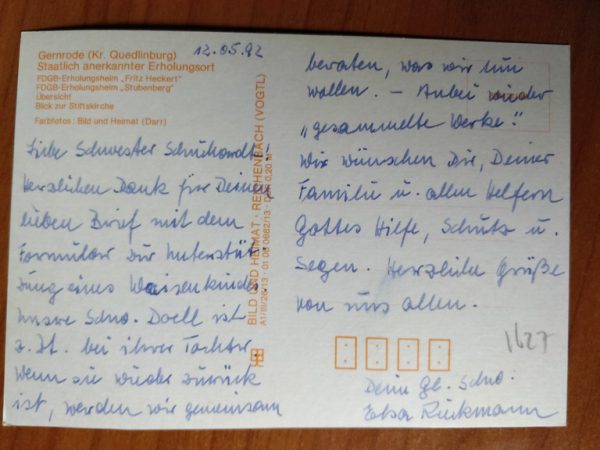 Gernrode (Kr. Quedlinburg)
Staatlich anerkannter Erholungsort
FDGB-Erholungsheim „Fritz Heckert"
FDGB-Erholungsheim „Stubenberg"
Übersicht
Blick zur Stiftskirche
Farbfotos: Bild und Heimat (Darr)
12.05.92
Liebe Schwester Schuhardt!
Herzlichen Dank für Deinen
lieben Brief mit dem
Formular zur Unterstüt-
zung eines Waisenkindes
Unsere Schw. Doell ist
z. Zt. bei ihrer Tochter
Wenn sie wieder zurück
ist, werden wir gemeinsam
BILD UND HEIMAT · REICHENBACH (VOGTL)
A1/III/26/13 01 08 0662/13
beraten, was wir tun
wollen. – Anbei wieder
„gesammelte Werke".
Wir wünschen Dir, Deiner
Familie u. allen Helfern
Gottes Hilfe, Schutz u.
Segen. Herzliche Grüße
von uns allen.
1627
Deine gl. Schw.
Rieckmann